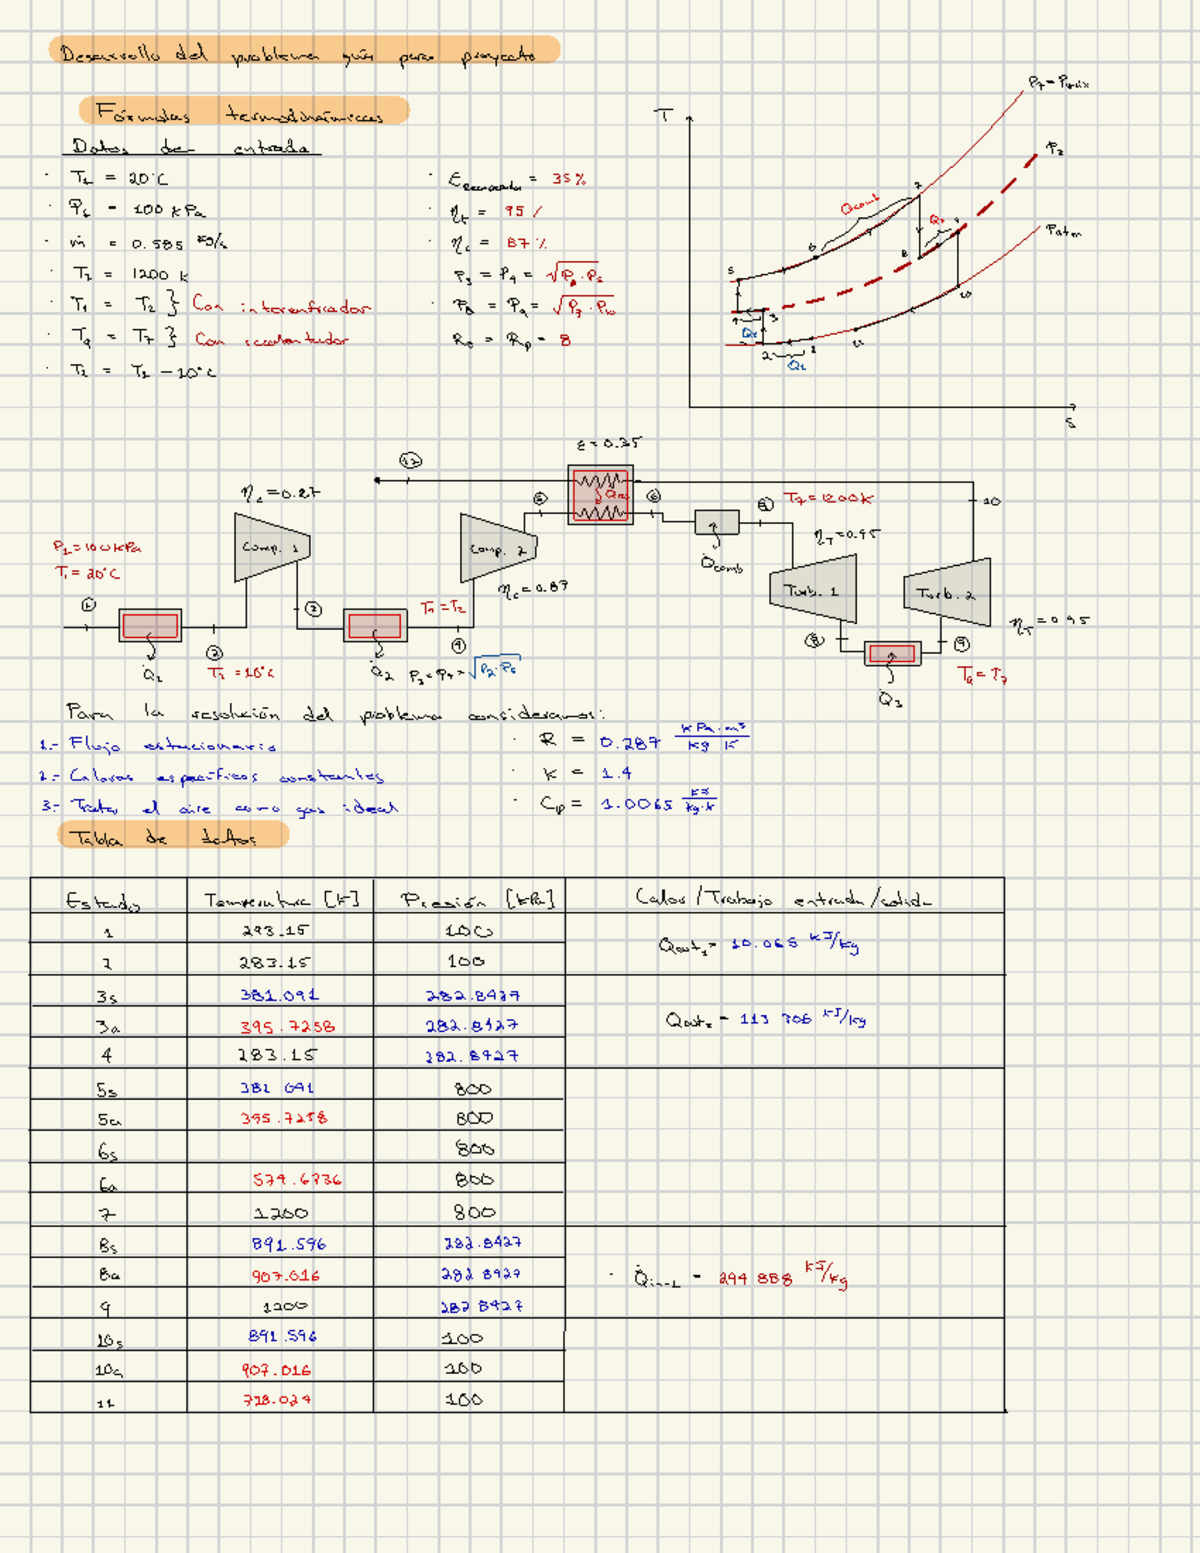 Desarrollo del problema guía para proyecto
Fórmulas termodinámicas
Datos de entrada
· T₁ = 20°C
· P₁ = 100 kPa
· ṁ = 0.585 kg/s
· T₇ = 1200 K
· T₄ = T₂ } Con interenfriador
· T₉ = T₇ } Con recalentador
· T₂ = T₁ - 10°C
· ε = 35%
· η_t = 95%
· η_c = 87%
P₃ = P₄ = √P₂·P₅
· P₈ = P₉ = √P₇·P₁₀
· = R_p = 8
T
P₂
Patm
Qcomb
7
5
6
8
10
3
2
11
Q₁
s
ε = 0.35
12
5
6
10
T₇ = 1200K
P₁ = 100kPa
T₁ = 20°C
Comp. 1
Comp. 2
η_c = 0.87
Q̇comb
η_T = 0.95
Turb. 1
Turb. 2
η_T = 0.95
1
2
3
4
T₄ = T₂
8
9
Q̇₁
T₂ = 10°C
Q̇₂
P₃ = P₄ = √P₂·P₅
Q̇₃
T₉ = T₇
Para la resolución del problema consideramos:
1.- Flujo estacionario
2.- Calores específicos constantes
3.- Tratar el aire como gas ideal
· R = 0.287 kPa·m³/kg K
· K = 1.4
· Cp = 1.0065 kJ/kg·K
Tabla de datos
Estado Temperatura [K] Presión [kPa] Calor/Trabajo entrada/salida
1 293.15 100 Qout₁ = 10.065 kJ/kg
2 283.15 100
3s 381.091 282.8427
3a 395.7258 282.8427 Qout₂ = 113 306 kJ/kg
4 283.15 282.8427
5s 381 091 800
5a 395.7258 800
6s 800
6a 574.6736 800
7 1200 800
8s 891.596 282.8427
8a 907.016 282 8427 · Q̇in-1 = 294 888 kJ/kg
9 1200 282 8427
10s 891.596 100
10a 907.016 100
11 728.024 100